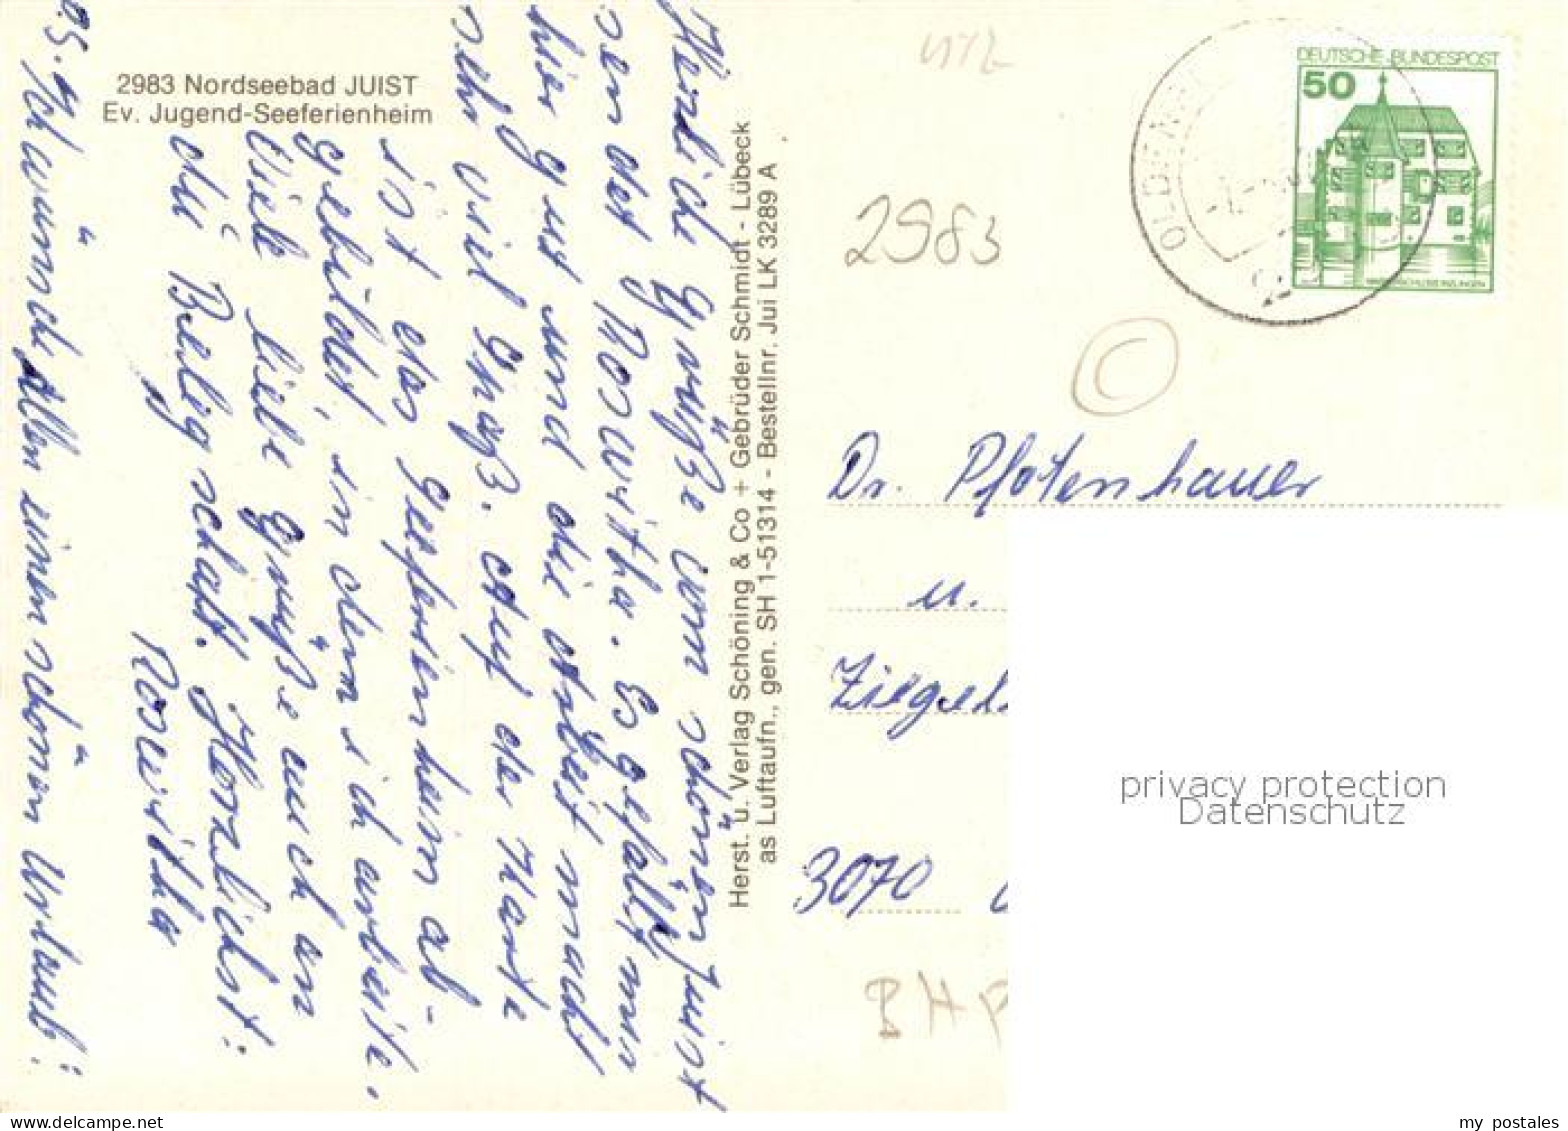 2983 Nordseebad JUIST
Ev. Jugend-Seeferienheim
Herzliche Grüße vom schönen Juist
sendet Roswitha. Es gefällt mir
hier gut und die Arbeit macht
sehr viel Spaß. Auf der Karte
ist das Seeferienheim ab-
gebildet, in dem ich arbeite.
Viele liebe Grüße auch an
die Belegschaft. Herzlichst:
Roswitha
P.S. Ich wünsche Allen einen schönen Urlaub!
Herst. u. Verlag Schöning & Co + Gebrüder Schmidt - Lübeck
as Luftaufn., gen. SH 1-51314 - Bestellnr. Jui LK 3289 A
DEUTSCHE BUNDESPOST
50
WASSERSCHLOSS INZLINGEN
2983
C
Dr. Pfotenhauer
u.
3070
BHP
privacy protection
Datenschutz
my postales